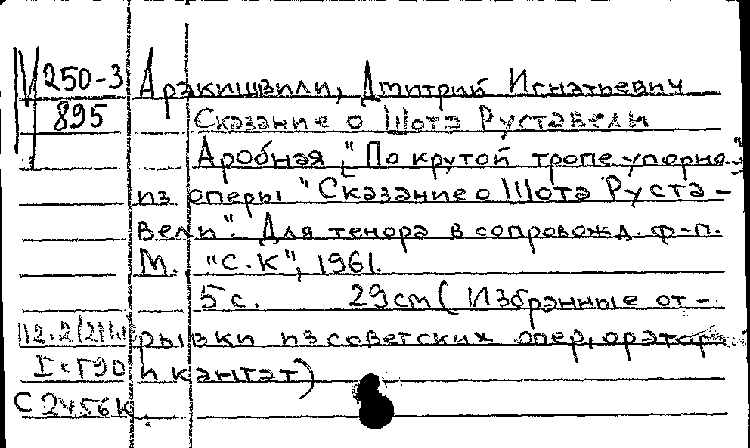 М 250-3 Аракишвили, Дмитрий Игнатьевич
895 Сказание о Шота Руставели
Аробная "По крутой тропе упорно..."
из оперы "Сказание о Шота Руста-
вели". Для тенора в сопровожд. ф-п.
М., "С.К", 1961.
5 с. 29 cm (Избранные от-
рывки из советских опер, ораторий
и кантат)
С 2456к